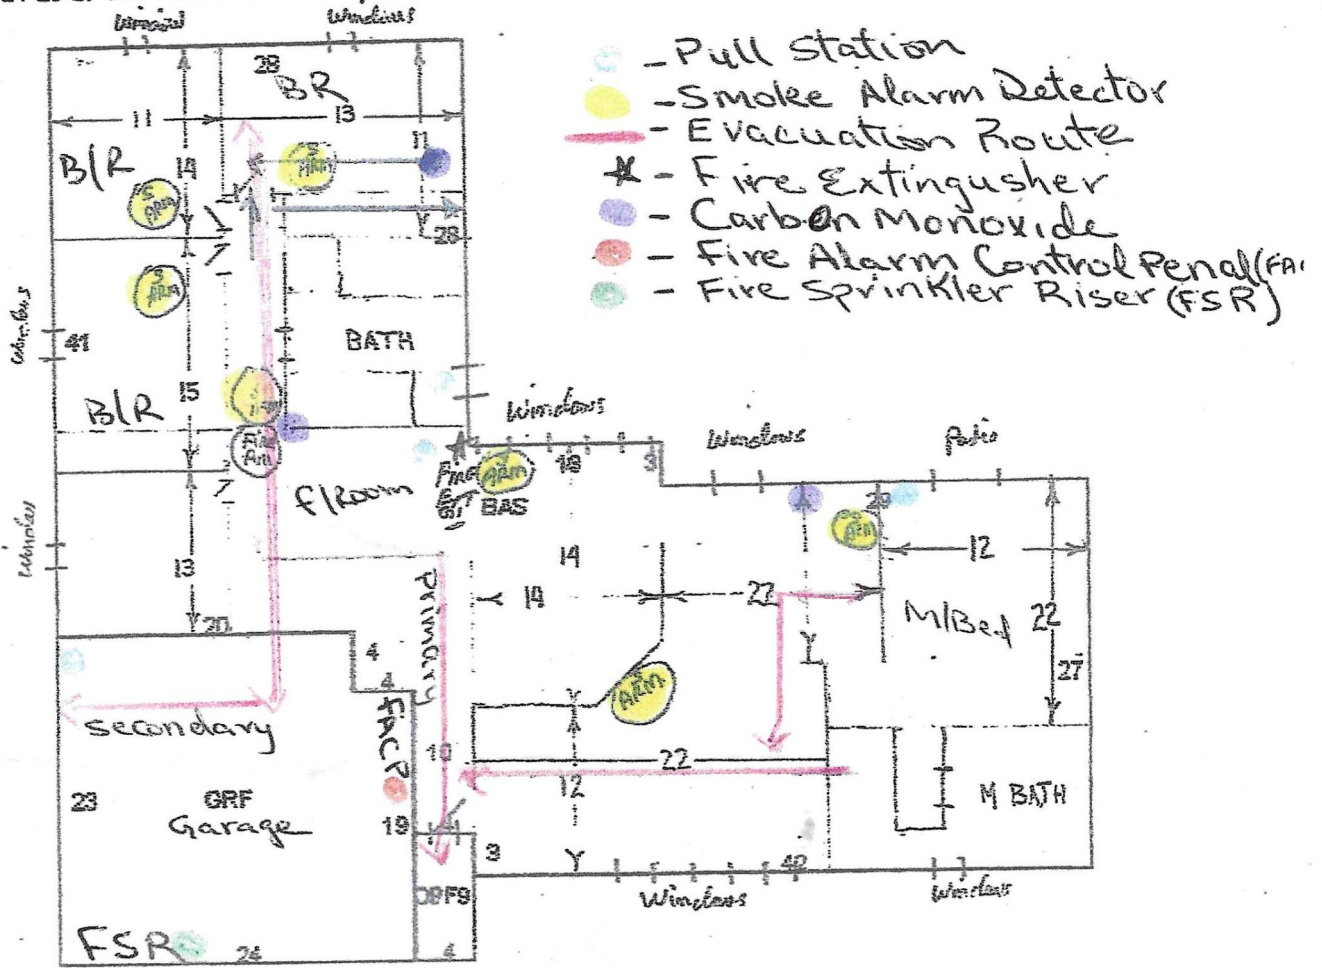 Windows
Windows
- Pull Station
- Smoke Alarm Detector
- Evacuation Route
- Fire Extingusher
- Carbon Monoxide
- Fire Alarm Control Penal (FA
- Fire Sprinkler Riser (FSR)
28
BR
11
13
11
B/R
14
S
ARM
S
ARM
28
S
ARM
Windows
41
BATH
15
B/R
Windows
Windows
Patio
Fire
Arm
f/Room
Fire
Ext
ARM
BAS
18
3
29
ARM
12
Windows
13
14
14
27
M/Bed
22
27
20
4
4
Primary
ARM
secondary
FACP
10
22
12
M BATH
23
GRF
Garage
19
3
42
Windows
Windows
FSR
24
4